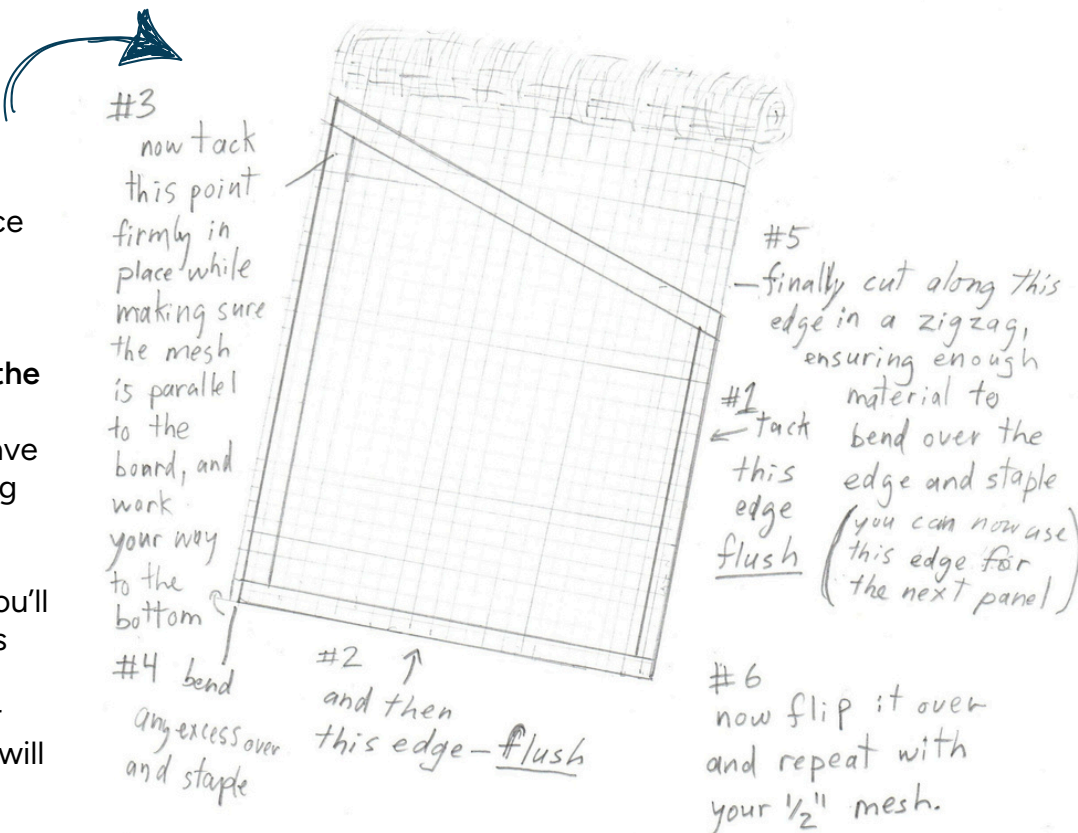 ce
the
ave
g
ou'll
s
will
#3
now tack
this point
firmly in
place while
making sure
the mesh
is parallel
to the
board, and
work
your way
to the
bottom
#4 bend
any excess over
and staple
#2
and then
this edge - flush
#5
- finally cut along this
edge in a zigzag,
ensuring enough
material to
bend over the
edge and staple
(you can now use
this edge for
the next panel)
#1
tack
this
edge
flush
#6
now flip it over
and repeat with
your 1/2" mesh.